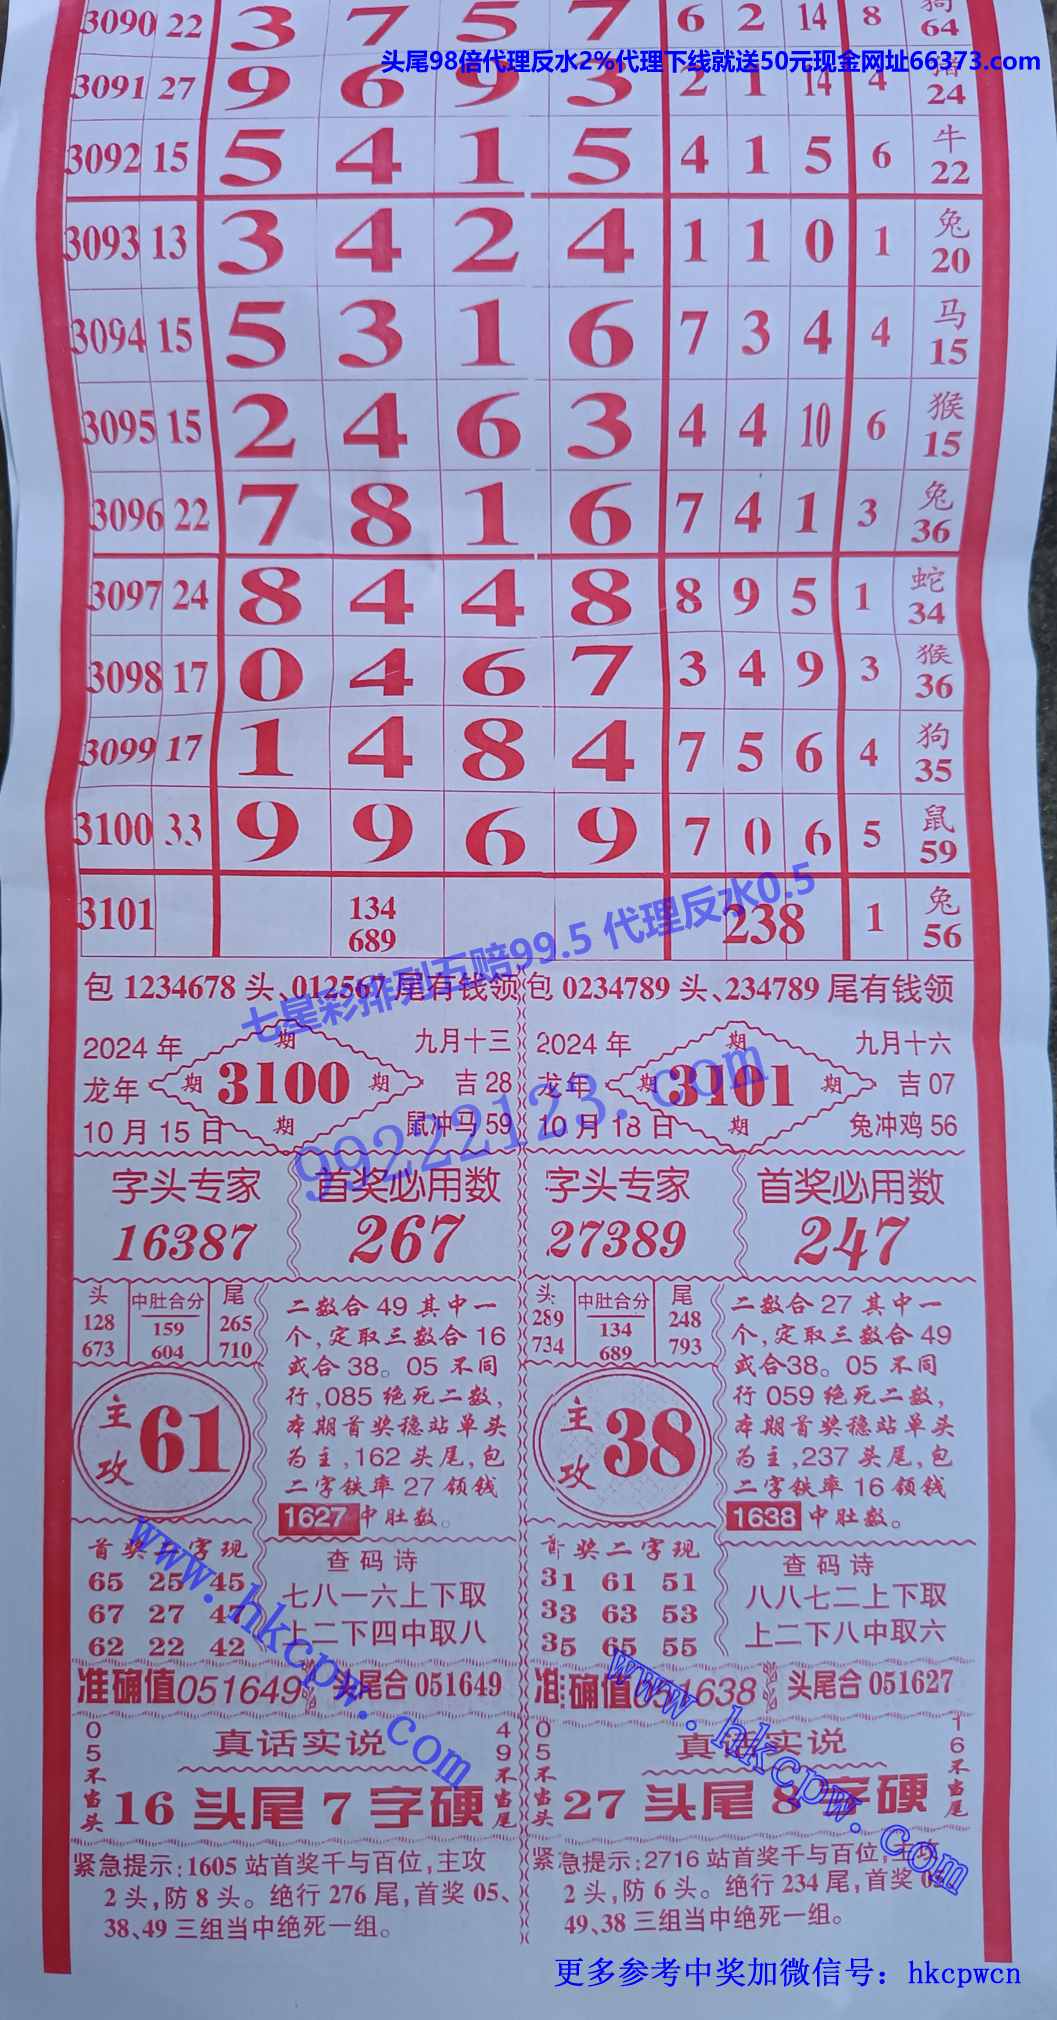 3090 22 3 7 5 7 6 2 14 8 狗
64
头尾98倍代理反水2%代理下线就送50元现金网址66373.com
3091 27 9 6 9 3 2 1 14 4 猪
24
3092 15 5 4 1 5 4 1 5 6 牛
22
3093 13 3 4 2 4 1 1 0 1 兔
20
3094 15 5 3 1 6 7 3 4 4 马
15
3095 15 2 4 6 3 4 4 10 6 猴
15
3096 22 7 8 1 6 7 4 1 3 兔
36
3097 24 8 4 4 8 8 9 5 1 蛇
34
3098 17 0 4 6 7 3 4 9 3 猴
36
3099 17 1 4 8 4 7 5 6 4 狗
35
3100 33 9 9 6 9 7 0 6 5 鼠
59
3101 134 238 1 兔
689 56
七星彩排列五赔99.5 代理反水0.5
包 1234678 头、012567 尾有钱领
包 0234789 头、234789 尾有钱领
2024 年 期 九月十三
龙年 期 3100 期 吉 28
10 月 15 日 期 鼠冲马 59
2024 年 期 九月十六
龙年 期 3101 期 吉 07
10 月 18 日 期 兔冲鸡 56
99222123.com
字头专家 首奖必用数
16387 267
字头专家 首奖必用数
27389 247
头 中肚合分 尾
128 159 265
673 604 710
主攻 61
二数合 49 其中一
个,定取三数合 16
或合 38。05 不同
行,085 绝死二数,
本期首奖稳站单头
为主,162 头尾,包
二字铁率 27 领钱
1627 中肚数。
头 中肚合分 尾
289 134 248
734 689 793
主攻 38
二数合 27 其中一
个,定取三数合 49
或合38。05 不同
行 059 绝死二数,
本期首奖稳站单头
为主,237 头尾,包
二字铁率 16 领钱
1638 中肚数。
首奖二字现
65 25 45
67 27 47
62 22 42
查码诗
七八一六上下取
上二下四中取八
首奖二字现
31 61 51
33 63 53
35 65 55
查码诗
八八七二上下取
上二下八中取六
www.hkcpw.com
准确值051649 头尾合 051649
准确值051638 头尾合 051627
www.hkcpw.com
05不当头 真话实说 49不当尾
16 头尾 7 字硬
05不当头 真话实说 16不当尾
27 头尾 8 字硬
紧急提示:1605 站首奖千与百位,主攻
2 头,防 8 头。绝行 276 尾,首奖 05、
38、49 三组当中绝死一组。
紧急提示:2716 站首奖千与百位,主攻
2 头,防 6 头。绝行 234 尾,首奖 05、
49、38 三组当中绝死一组。
更多参考中奖加微信号：hkcpwcn